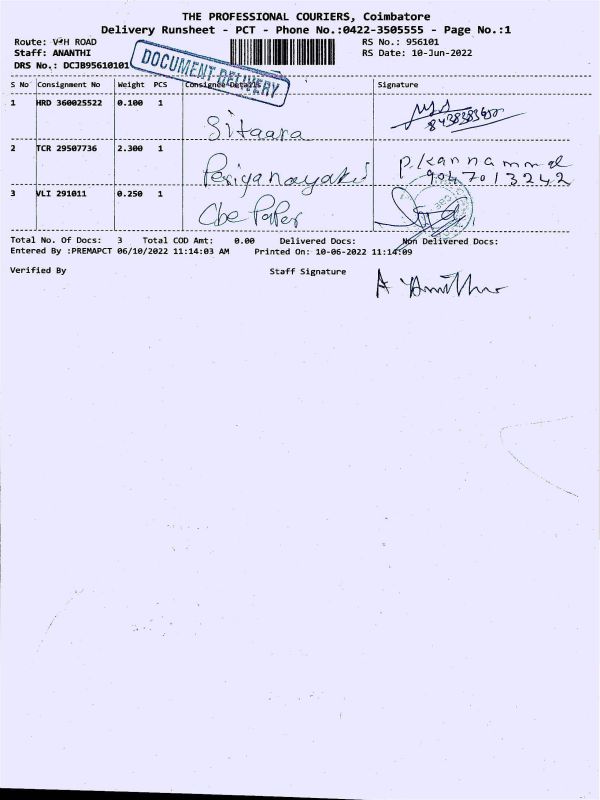 THE PROFESSIONAL COURIERS, Coimbatore
Delivery Runsheet - PCT - Phone No.:0422-3505555 - Page No.:1
Route: V H ROAD
RS No.: 956101
Staff: ANANTHI
RS Date: 10-Jun-2022
DRS No.: DCJB95610101
DOCUMENT DELIVERY
S No Consignment No Weight PCS Consignee Details Signature
1 HRD 360025522 0.100 1
Sitaara
2 TCR 29507736 2.300 1
Periyanayaki P.kannammal
9047013242
3 VLI 291011 0.250 1
Cbe Paper
Total No. Of Docs: 3 Total COD Amt: 0.00 Delivered Docs: Non Delivered Docs:
Entered By :PREMAPCT 06/10/2022 11:14:03 AM Printed On: 10-06-2022 11:14:09
Verified By Staff Signature